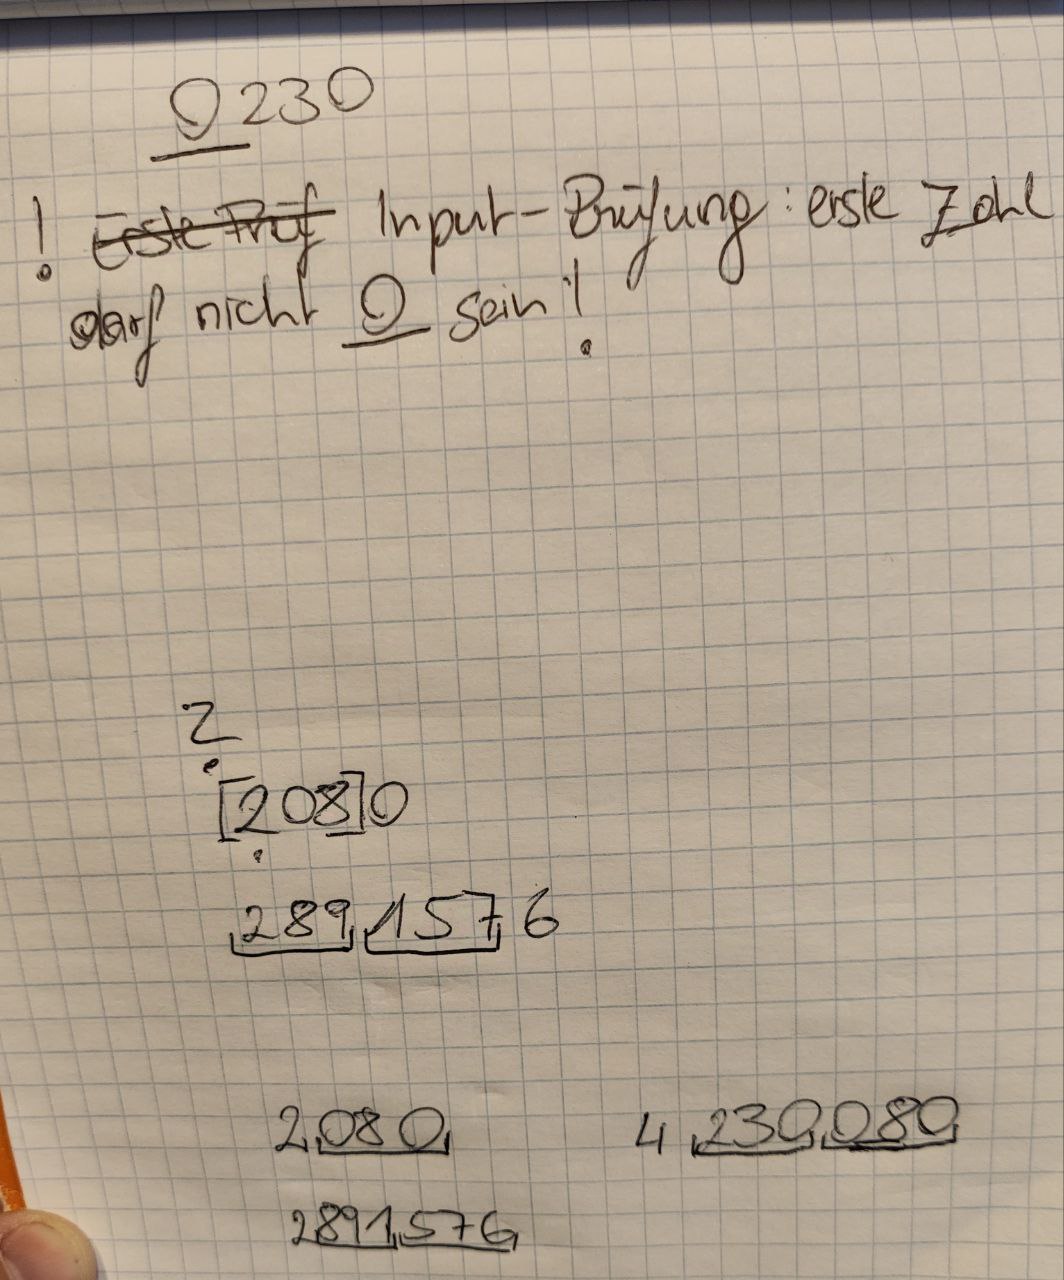 0230
! Erste Prüf Input-Prüfung: erste Zahl
darf nicht 0 sein!
2
[208]0
289 157 6
2 080
4 230 080
2 891 576